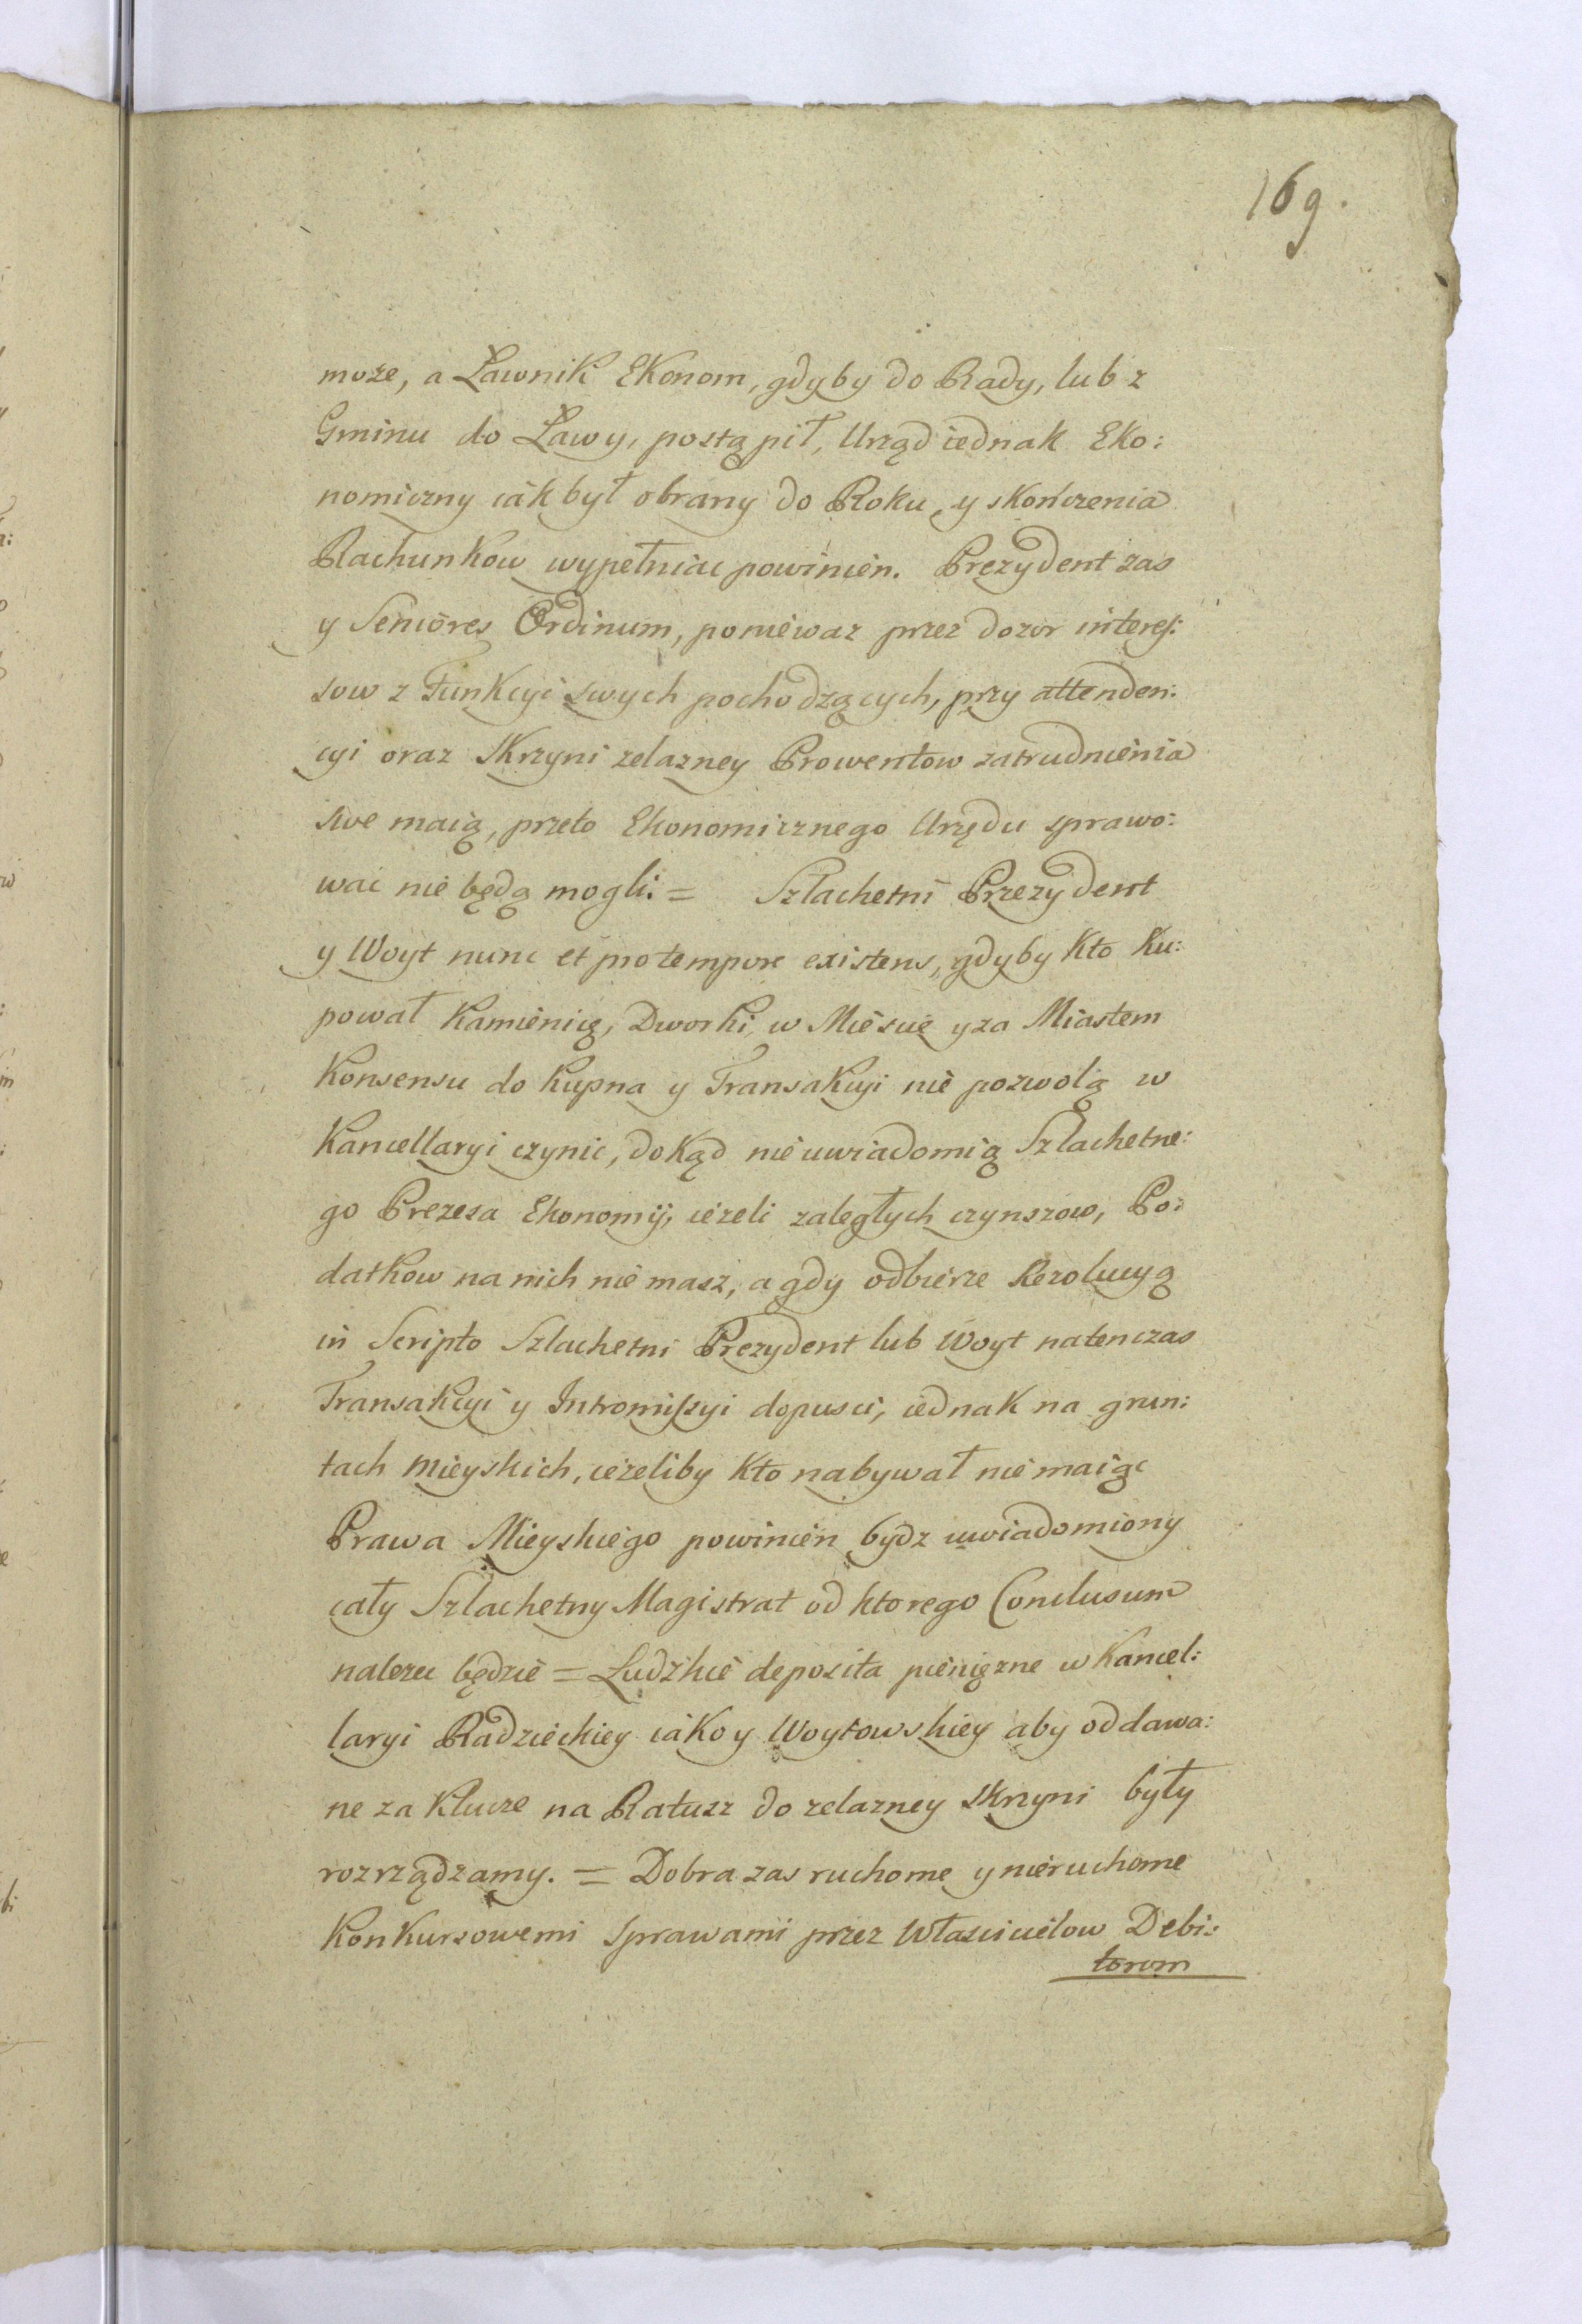 169.
może, a Ławnik Ekonom, gdyby do Rady, lub z
Gminu do Ławy, postąpił, Urząd iednak Eko:
nomiczny iak był obrany do Roku, y skończenia
Rachunkow wypełniac powinien. Prezydent zas
y Seniores Ordinum, poniewaz przez dozor interes:
sow z Funkcyi swych pochodzących, przy attenden:
cyi oraz Skrzyni zelazney Prowentow zatrudnienia
swe maią, przeto Ekonomicznego Urzędu sprawo:
wac nie będą mogli. = Szlachetni Prezydent
y Woyt nunc et pro tempore existens, gdyby kto Ku:
pował Kamienicę, Dworki, w Miescie y za Miastem
Konsensu do Kupna y Transakcyi nie pozwolą w
Kancellaryi czynic, dokąd nie uwiadomią Szlachetne:
go Prezesa Ekonomij, iezeli zaległych czynszow, Po:
datkow na nich nie masz, a gdy odbierze Rezolucyą
in Scripto Szlachetni Prezydent lub Woyt natenczas
Transakcyi y Intromissyi dopusci, iednak na grun:
tach Mieyskich, iezeliby kto nabywał nie maiąc
Prawa Mieyskiego powinien bydz uwiadomiony
cały Szlachetny Magistrat od ktorego Conclusum
nalezec będzie = Ludzkie deposita pieniężne w Kancel:
laryi Radzieckiey iako y Woytowskiey aby oddawa:
ne za Klucze na Ratusz do zelazney Skrzyni były
rozrządzamy. = Dobra zas ruchome y nieruchome
Konkursowemi sprawami przez Własicielow Debi:
torom